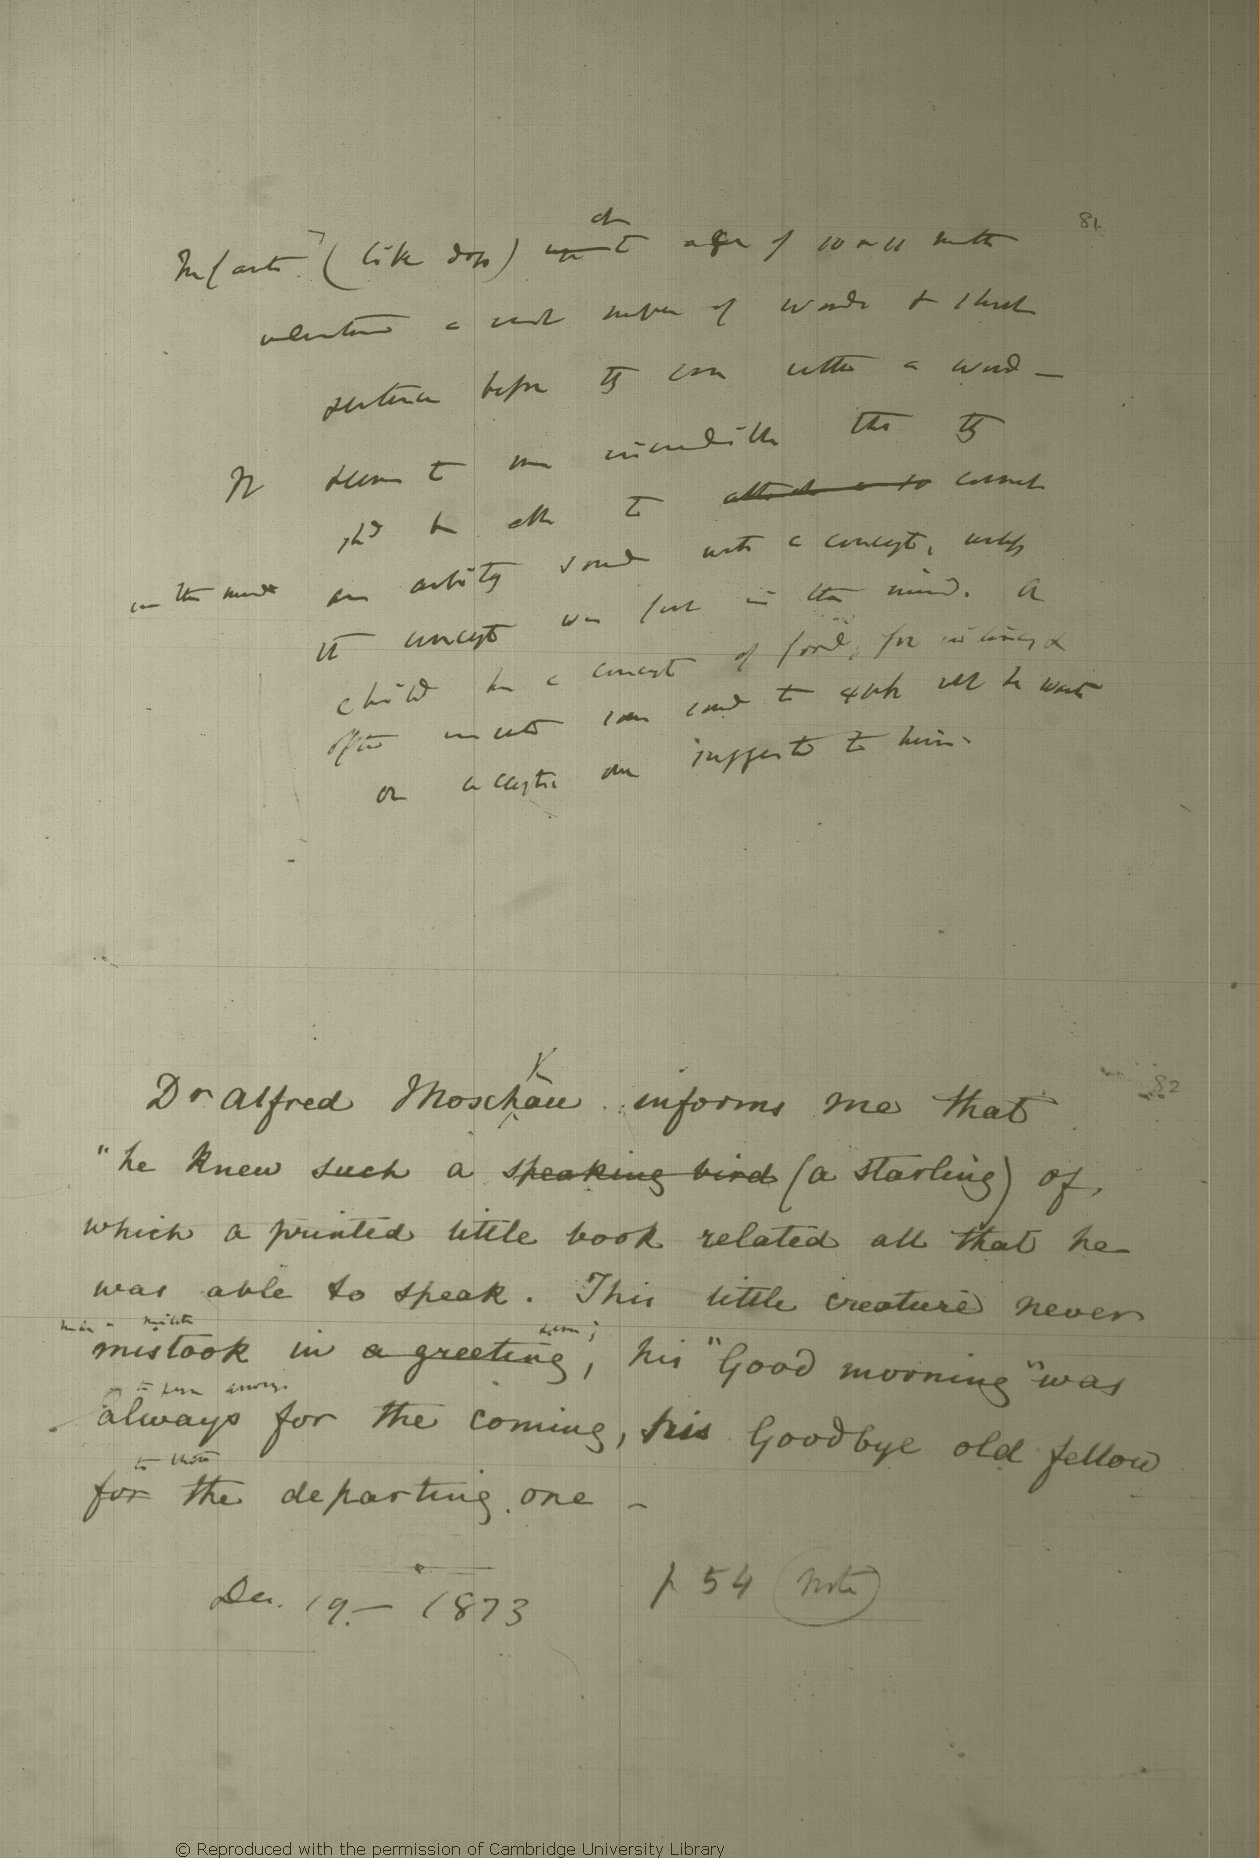 81
Infants (like dogs) at age of 10 or 11 months
understand a vast number of words & short
sentences before they can utter a word —
It seems to me incredible that they
shd be able to connect
in the mind an arbitrary sound with a concept, unless
the concept was first in the mind. A
child has a concept of food, for instance, &
often invents some sound to ask what he wants
or accepts one suggested to him.
82
Dr Alfred Moschkau informs me that
"he knew such a speaking bird (a starling) of
which a printed little book related all that he
was able to speak. This little creature never
mistook in a greeting, his "Good morning" was
to persons arriving
always for the coming, his Goodbye old fellow
to those
for the departing one —
Dec. 19. — 1873 p 54 Note
© Reproduced with the permission of Cambridge University Library